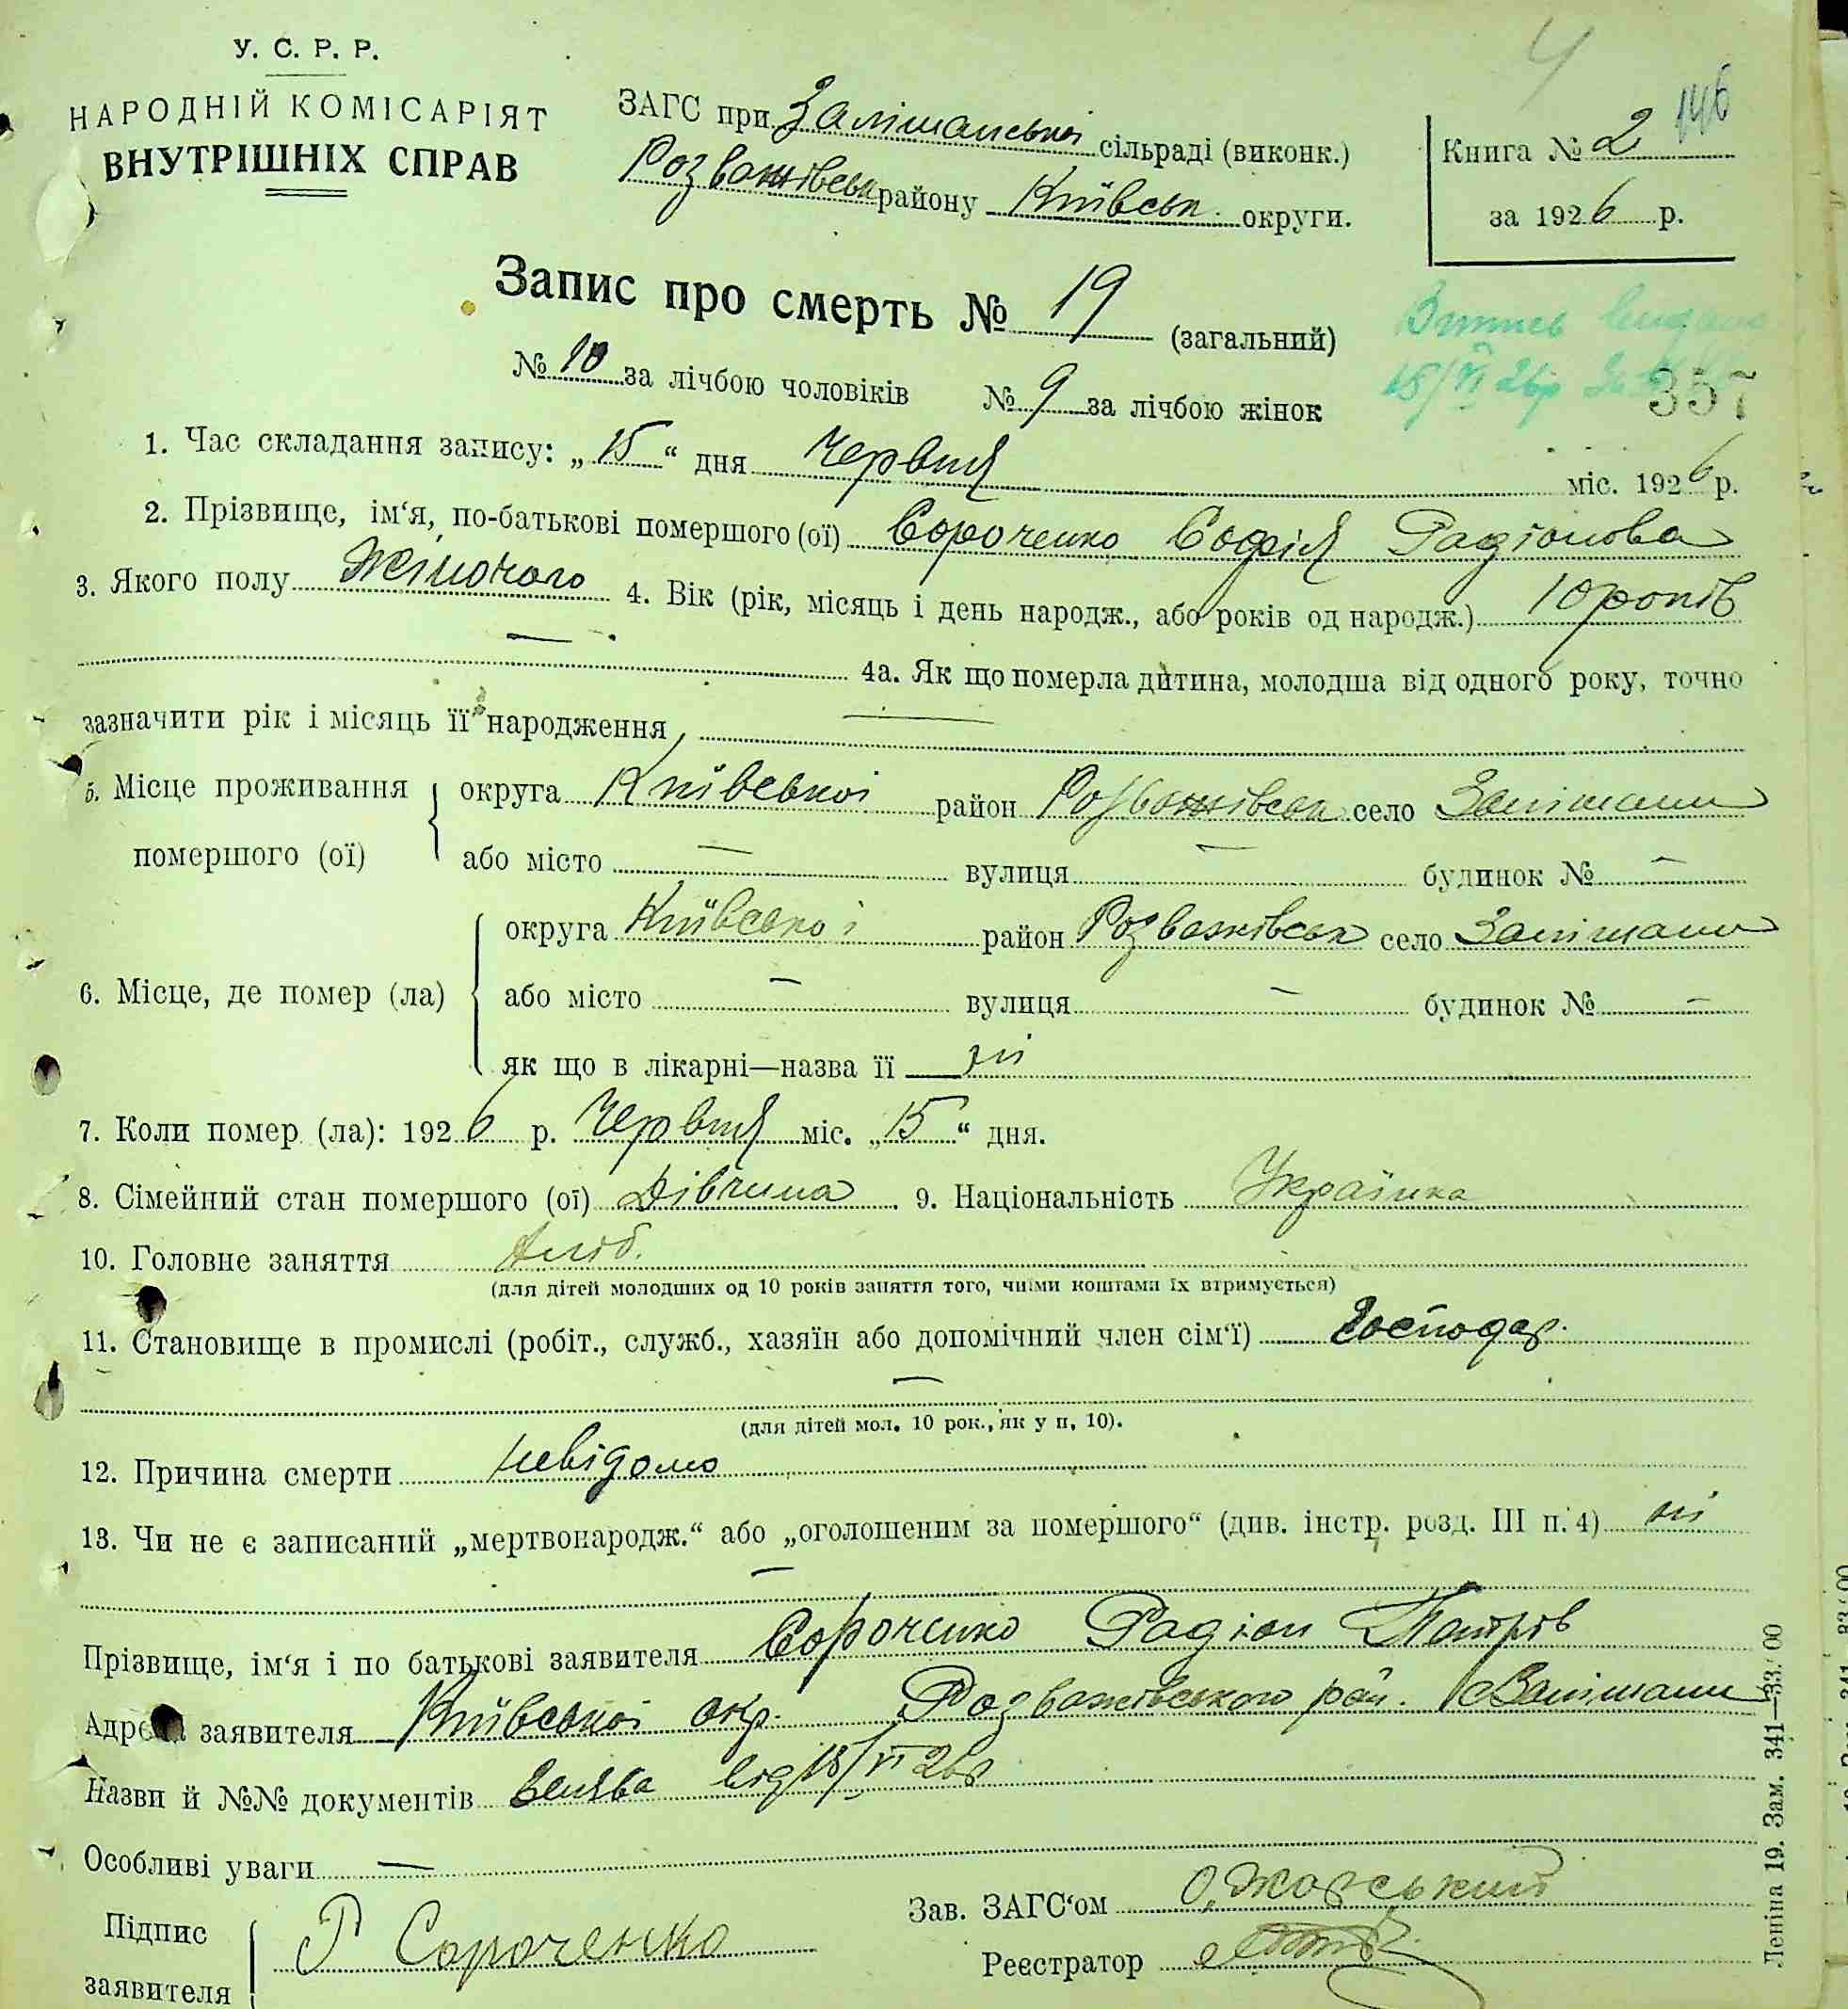 У. С. Р. Р.
НАРОДНІЙ КОМІСАРІЯТ
ВНУТРІШНІХ СПРАВ
ЗАГС при Залішанській сільраді (виконк.)
Розважівськ району Київськ. округи.
4
146
Книга № 2
за 1926 р.
Запис про смерть № 19 (загальний)
№ 10 за лічбою чоловіків № 9 за лічбою жінок
15/VI 26р
357
1. Час складання запису: „15“ дня Червня міс. 1926 р.
2. Прізвище, ім‘я, по-батькові помершого (ої) Сороченко Софія Радіонова
3. Якого полу Жіночого 4. Вік (рік, місяць і день народж., або років од народж.) 10 років
—
4а. Як що померла дитина, молодша від одного року, точно
зазначити рік і місяць її народження —
5. Місце проживання помершого (ої)
округа Київської район Розважівськ село Залішани
або місто — вулиця — будинок № —
6. Місце, де помер (ла)
округа Київської район Розважівськ село Залішани
або місто — вулиця — будинок № —
як що в лікарні—назва її ні
7. Коли помер (ла): 1926 р. Червня міс. „15“ дня.
8. Сімейний стан помершого (ої) Дівчина. 9. Національність Українка
10. Головне заняття Хліб.
(для дітей молодших од 10 років заняття того, чиїми коштами їх втримується)
11. Становище в промислі (робіт., служб., хазяїн або допомічний член сім‘ї) Господар.
—
(для дітей мол. 10 рок., як у п, 10).
12. Причина смерти невідомо
13. Чи не є записаний „мертвонародж.“ або „оголошеним за помершого“ (див. інстр. розд. III п. 4) ні
—
Прізвище, ім‘я і по батькові заявителя Сороченко Радіон Петрів
Адреса заявителя Київської окр. Розважівського рай. с Залішани
Назви й №№ документів Заява від 15/VI 26р
Особливі уваги —
Підпис заявителя Р Сороченко
Зав. ЗАГС‘ом
Реєстратор
Леніна 19. Зам. 341—33.000